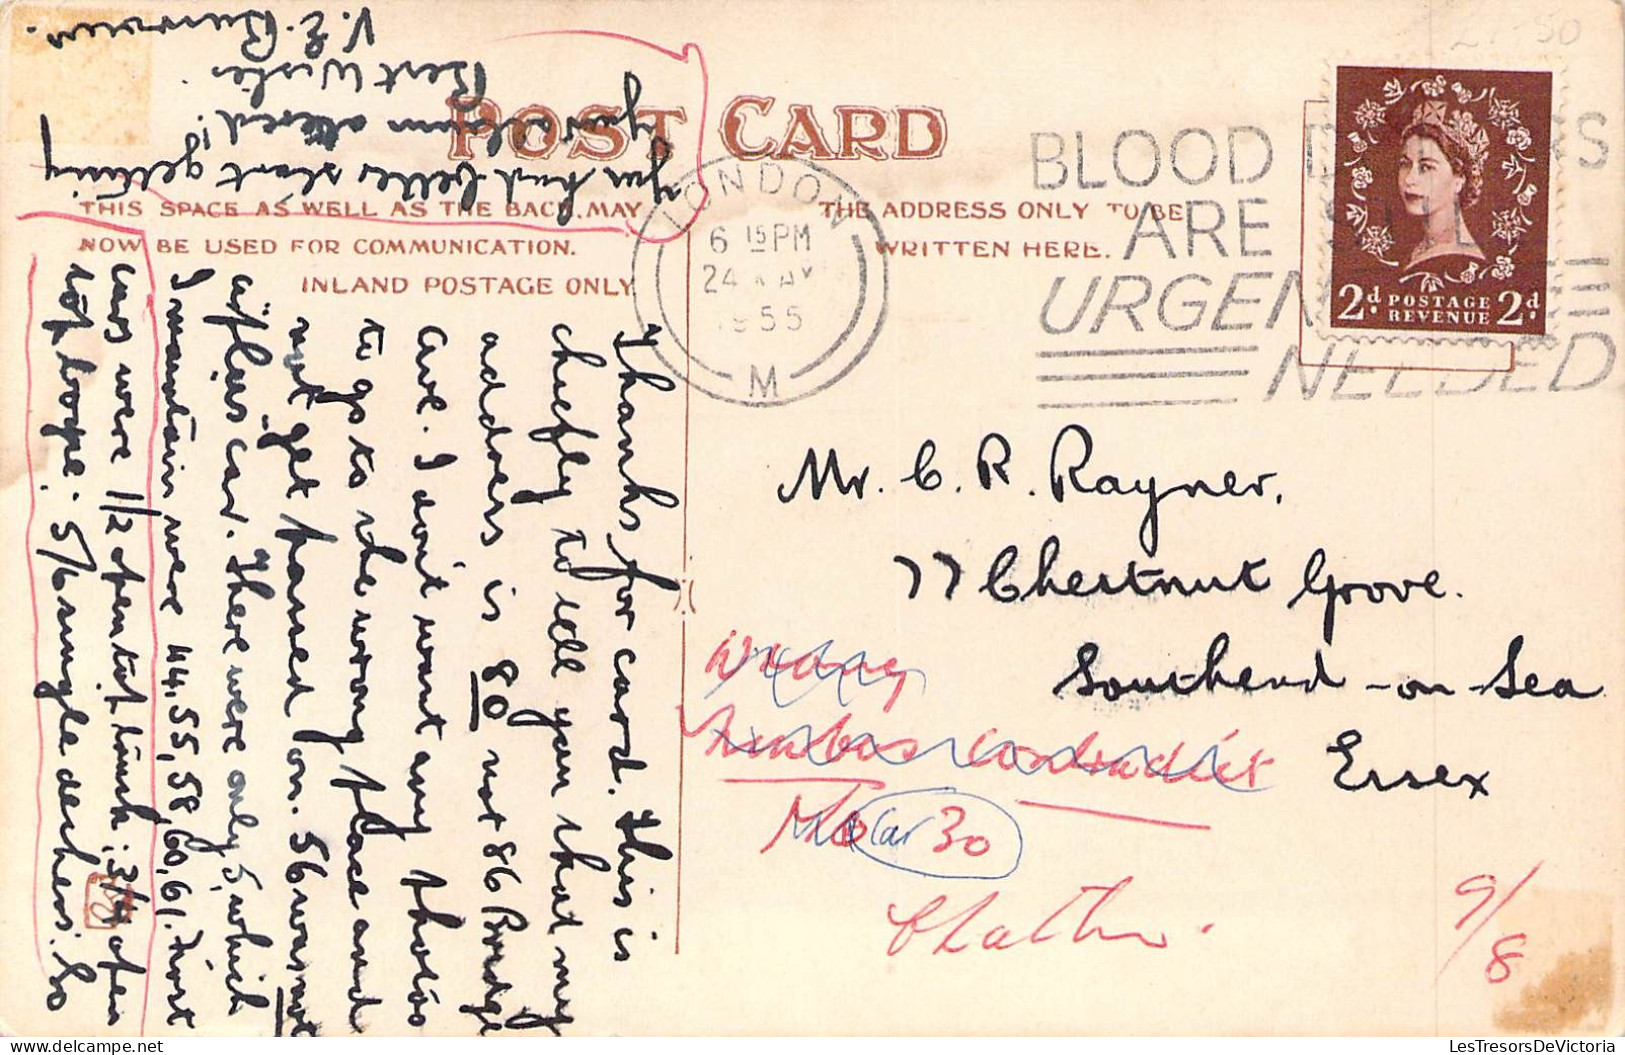 POST CARD
THIS SPACE AS WELL AS THE BACK, MAY
NOW BE USED FOR COMMUNICATION.
INLAND POSTAGE ONLY.
THE ADDRESS ONLY TO BE
WRITTEN HERE.
LONDON
6 15 PM
24 MAY
1955
M
BLOOD
ARE
URGEN
NEEDED
2d POSTAGE 2d
REVENUE
Mr. C. R. Rayner,
77 Chestnut Grove.
Southend-on-Sea
Essex
Wrong
Car 30
9/8
Thanks for card. This is
chiefly to tell you that my
address is 80 not 86 Bridge
Ave. I don't want any photos
to go to the wrong place and
not get passed on. 56 was not
a car. There were only 5, which
I maintain were 44, 55, 58, 60, 61. First
cars were 1/2 open top, 3/4 open
top, 5/6 single deckers. So
you had better start getting
your album altered!
Best Wishes
V. E. Burrows.
LesTresorsDeVictoria